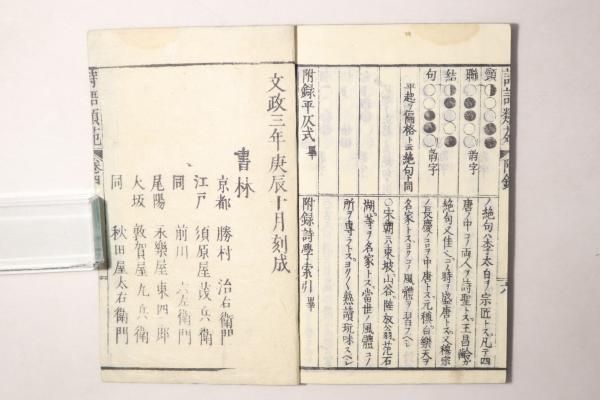 詩語類苑 附録
頸
聯
結
句
韵字
韵字
平起ヲ偏格ト云絶句ト同
附録平仄式 畢
ノ絶句ハ李太白ヲ宗匠トス凡テ四
唐ノ中コノ両人ヲ詩聖トス王昌齢カ
絶句又佳ナリコノ時ヲ盛唐トス又穆宗
ノ長慶ノコロヲ中唐トス元稹白樂天ヲ
名家トスヨクコノ風體ヲ習フヘシ
○宋朝ニハ東坡山谷陸放翁范石
湖等ヲ名家トス當世ノ風體コノ
所ヲ專ラトスヨクヨク熟讀玩味スヘシ
附録詩學索引 畢
文政三年庚辰十月刻成
書林
京都 勝村 治右衛門
江戸 須原屋茂兵衛
同 前川 六左衛門
尾陽 永樂屋東四郎
大坂 敦賀屋九兵衛
同 秋田屋太右衛門
詩語類苑 卷四